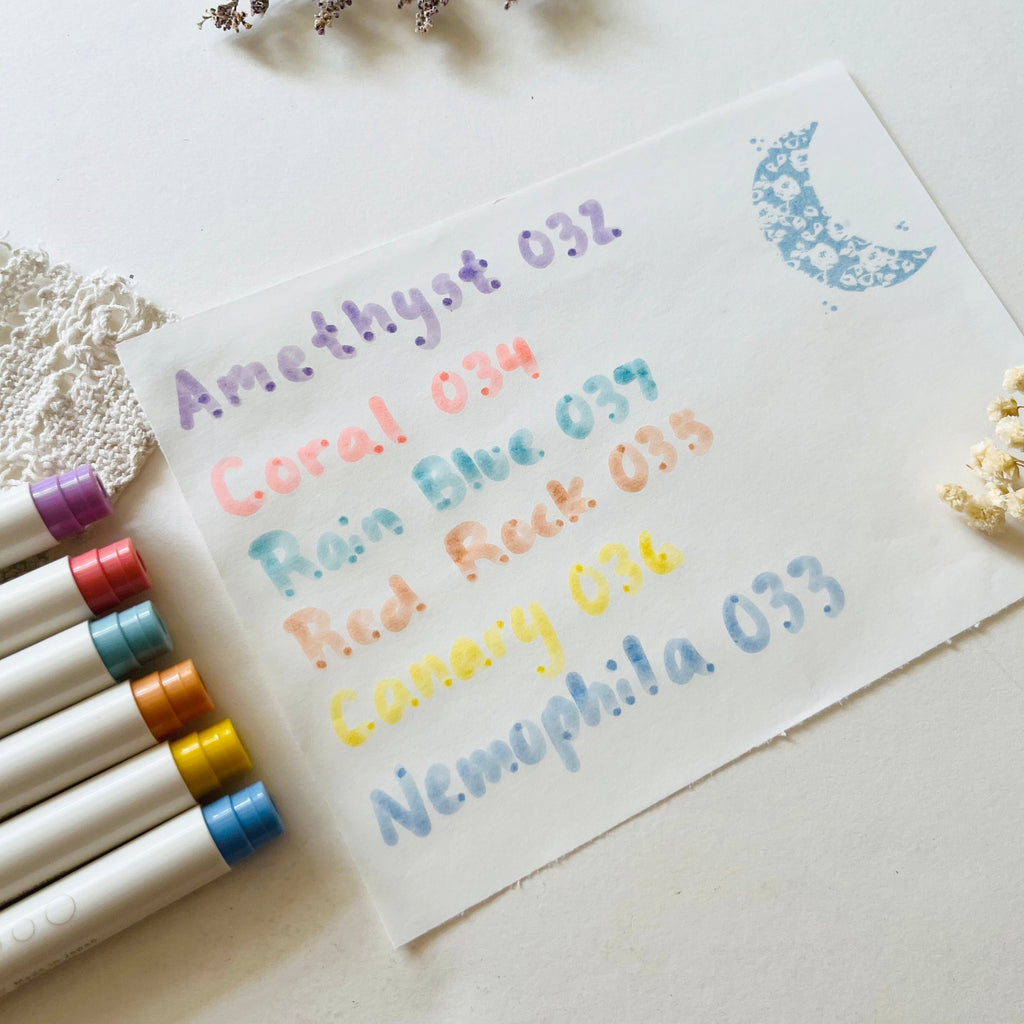 Amethyst 032
Coral 034
Rain Blue 037
Red Rock 035
Canary 036
Nemophila 033
Made in Japan